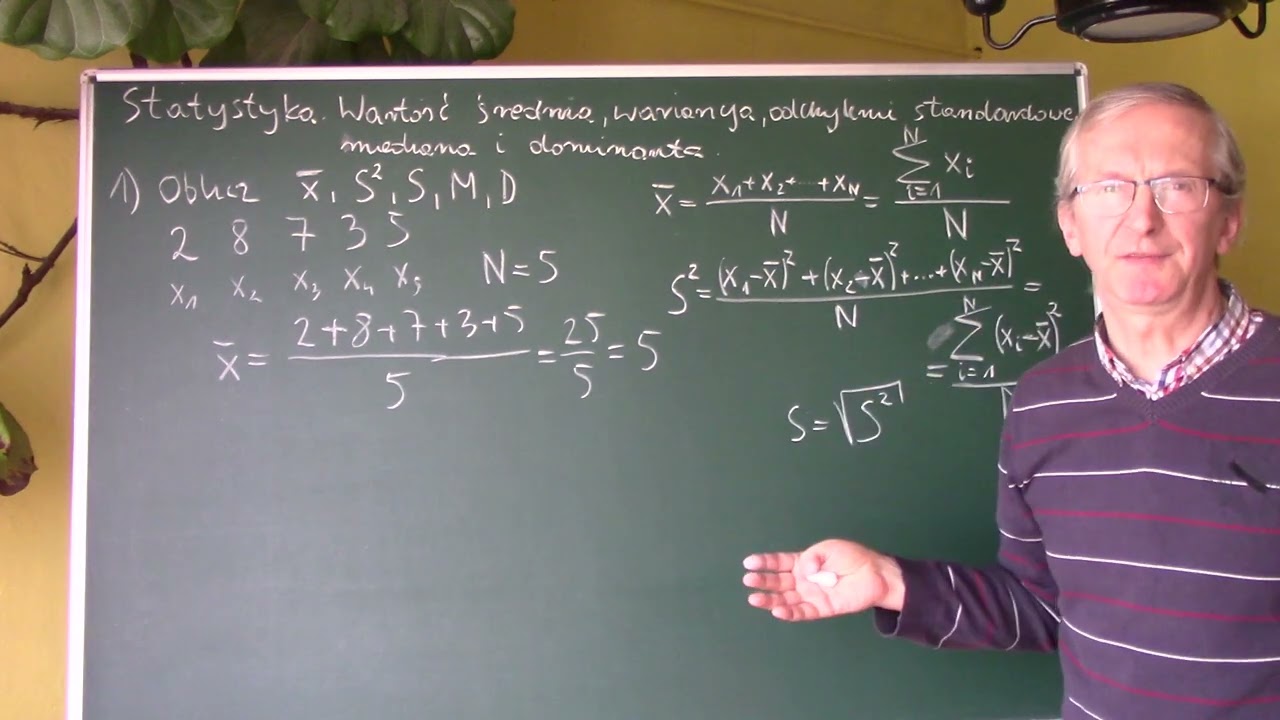 Statystyka. Wartość średnia, wariancja, odchylenie standardowe,
mediana i dominanta.
1) Oblicz x̄, S², S, M, D
2 8 7 3 5
x₁ x₂ x₃ x₄ x₅ N=5
x̄ = (2+8+7+3+5)/5 = 25/5 = 5
x̄ = (x₁+x₂+...+x_N)/N = (∑_{i=1}^{N} x_i)/N
S² = ((x₁-x̄)²+(x₂-x̄)²+...+(x_N-x̄)²)/N =
= (∑_{i=1}^{N} (x_i-x̄)²)/N
S = √S²